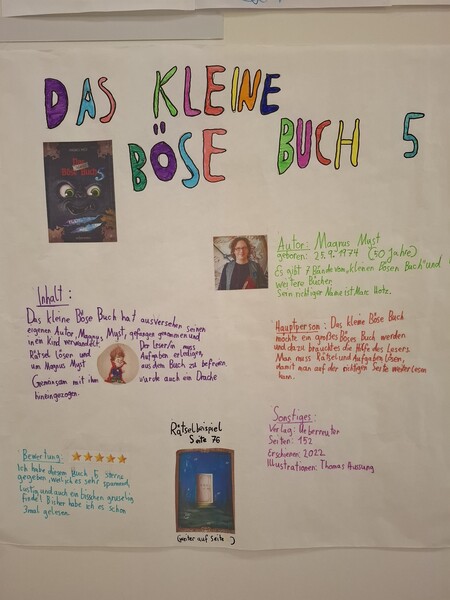 DAS KLEINE
BÖSE BUCH 5
Das
Böse Buch 5
Autor: Magnus Myst
geboren: 25.9.1974 (50 Jahre)
Es gibt 7 Bände vom „kleinen bösen Buch" und
weitere Bücher.
Sein richtiger Name ist Marc Hotz.
Inhalt:
Das kleine Böse Buch hat ausversehen seinen
eigenen Autor, Magnus Myst, gefangen genommen und
in ein Kind verwandelt. Der Leser/in muss
Rätsel Lösen und Aufgaben erledigen,
um Magnus Myst aus dem Buch zu befreien.
Gemeinsam mit ihm wurde auch ein Drache
hineingezogen.
Hauptperson: Das kleine Böse Buch
möchte ein großes Böses Buch werden
und dazu braucht es die Hilfe des Lesers.
Man muss Rätsel und Aufgaben lösen,
damit man auf der richtigen Seite weiterlesen
kann.
Rätselbeispiel
Seite 76
Weiter auf Seite :)
Sonstiges:
Verlag: Ueberreuter
Seiten: 152
Erschienen: 2022
Illustrationen: Thomas Hussung
Bewertung:
Ich habe diesem Buch 5 Sterne
gegeben, weil ich es sehr spannend,
lustig und auch ein bisschen gruselig
finde! Bisher habe ich es schon
3mal gelesen.